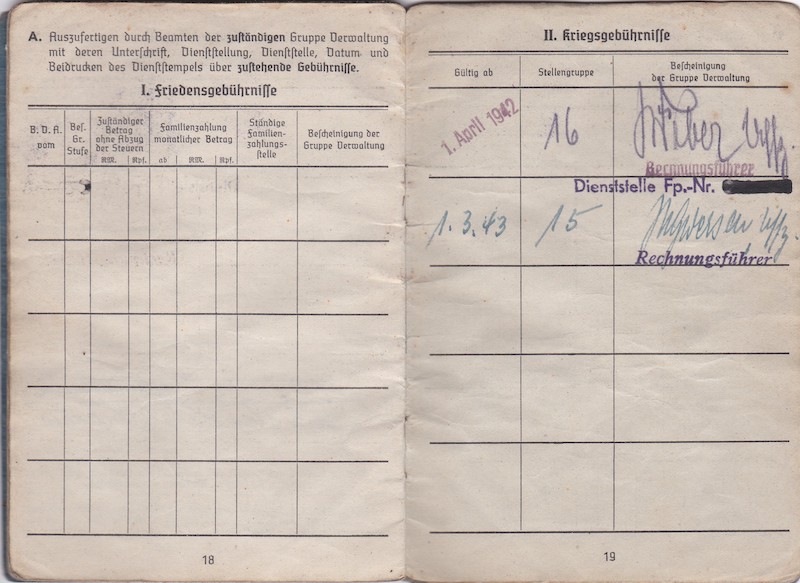 A. Auszufertigen durch Beamten der zuständigen Gruppe Verwaltung
mit deren Unterschrift, Dienststellung, Dienststelle, Datum und
Beidrucken des Dienststempels über zustehende Gebührnisse.
I. Friedensgebührnisse
B. D. A.
vom
Bes.
Gr.
Stufe
Zuständiger
Betrag
ohne Abzug
der Steuern
RM. Rpf.
Familienzahlung
monatlicher Betrag
ab RM. Rpf.
Ständige
Familien-
zahlungs-
stelle
Bescheinigung der
Gruppe Verwaltung
18
II. Kriegsgebührnisse
Gültig ab
Stellengruppe
Bescheinigung
der Gruppe Verwaltung
1. April 1942
16
Uffz.
Rechnungsführer
Dienststelle Fp.-Nr.
1. 3. 43
15
Uffz.
Rechnungsführer
19